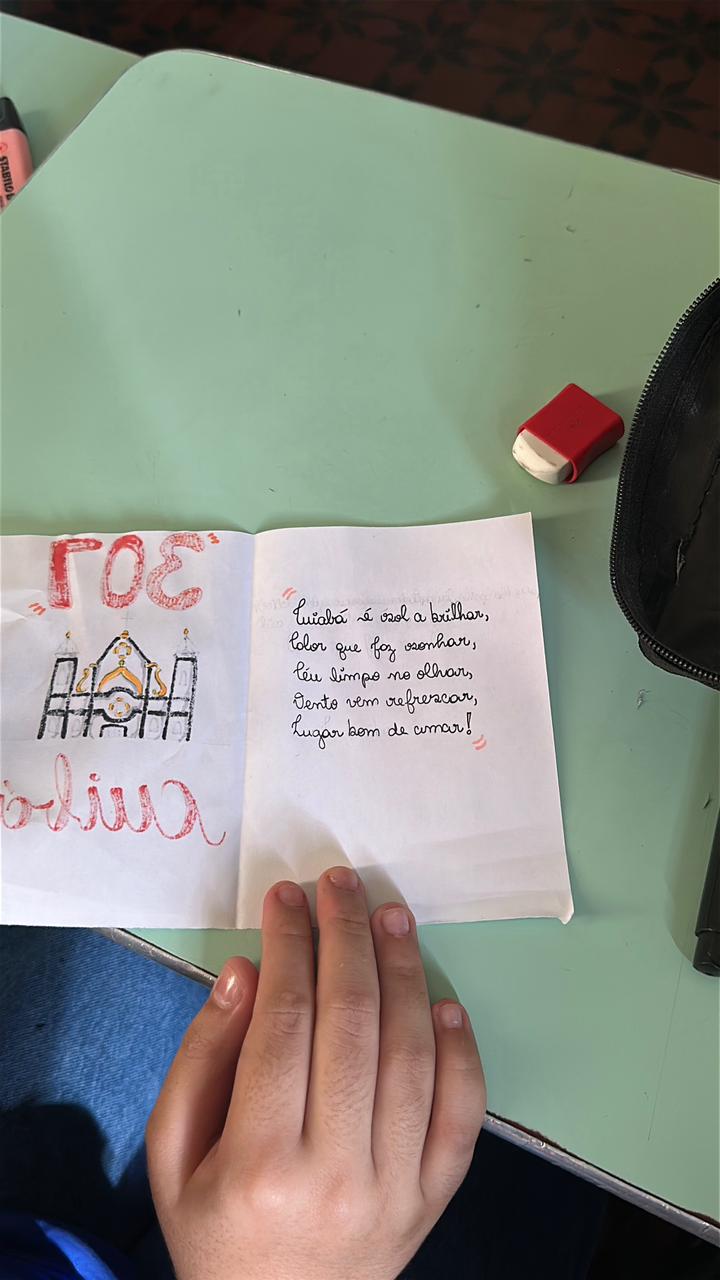 STABILO
307
Cuiabá
"Cuiabá é sol a brilhar,
Calor que faz sonhar,
Céu limpo no olhar,
Vento vem refrescar,
Lugar bom de amar!"